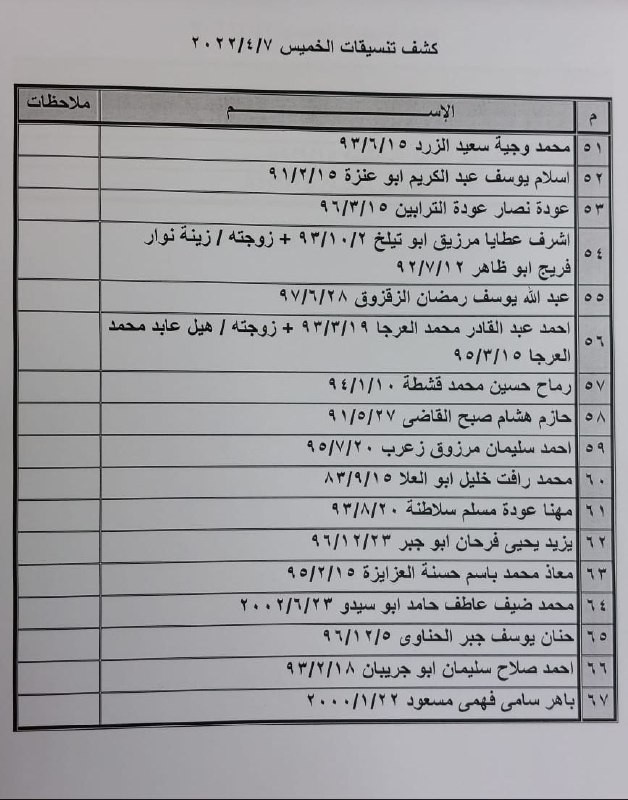 كشف تنسيقات الخميس ٢٠٢٢/٤/٧
م الإســـــم ملاحظات
٥١ محمد وجية سعيد الزرد ٩٣/٦/١٥
٥٢ اسلام يوسف عبد الكريم ابو عنزة ٩١/٢/١٥
٥٣ عودة نصار عودة الترابين ٩٦/٣/١٥
٥٤ اشرف عطايا مرزيق ابو تيلخ ٩٣/١٠/٢ + زوجته / زينة نوار
فريج ابو ظاهر ٩٢/٧/١٢
٥٥ عبد الله يوسف رمضان الزقزوق ٩٧/٦/٢٨
٥٦ احمد عبد القادر محمد العرجا ٩٣/٣/١٩ + زوجته / هيل عابد محمد
العرجا ٩٥/٣/١٥
٥٧ رماح حسين محمد قشطة ٩٤/١/١٠
٥٨ حازم هشام صبح القاضى ٩١/٥/٢٧
٥٩ احمد سليمان مرزوق زعرب ٩٥/٧/٢٠
٦٠ محمد رافت خليل ابو العلا ٨٣/٩/١٥
٦١ مهنا عودة مسلم سلاطنة ٩٣/٨/٢٠
٦٢ يزيد يحيى فرحان ابو جبر ٩٦/١٢/٢٣
٦٣ معاذ محمد باسم حسنة العزايزة ٩٥/٢/١٥
٦٤ محمد ضيف عاطف حامد ابو سيدو ٢٠٠٢/٦/٢٣
٦٥ حنان يوسف جبر الحناوى ٩٦/١٢/٥
٦٦ احمد صلاح سليمان ابو جريبان ٩٣/٢/١٨
٦٧ باهر سامى فهمى مسعود ٢٠٠٠/١/٢٢